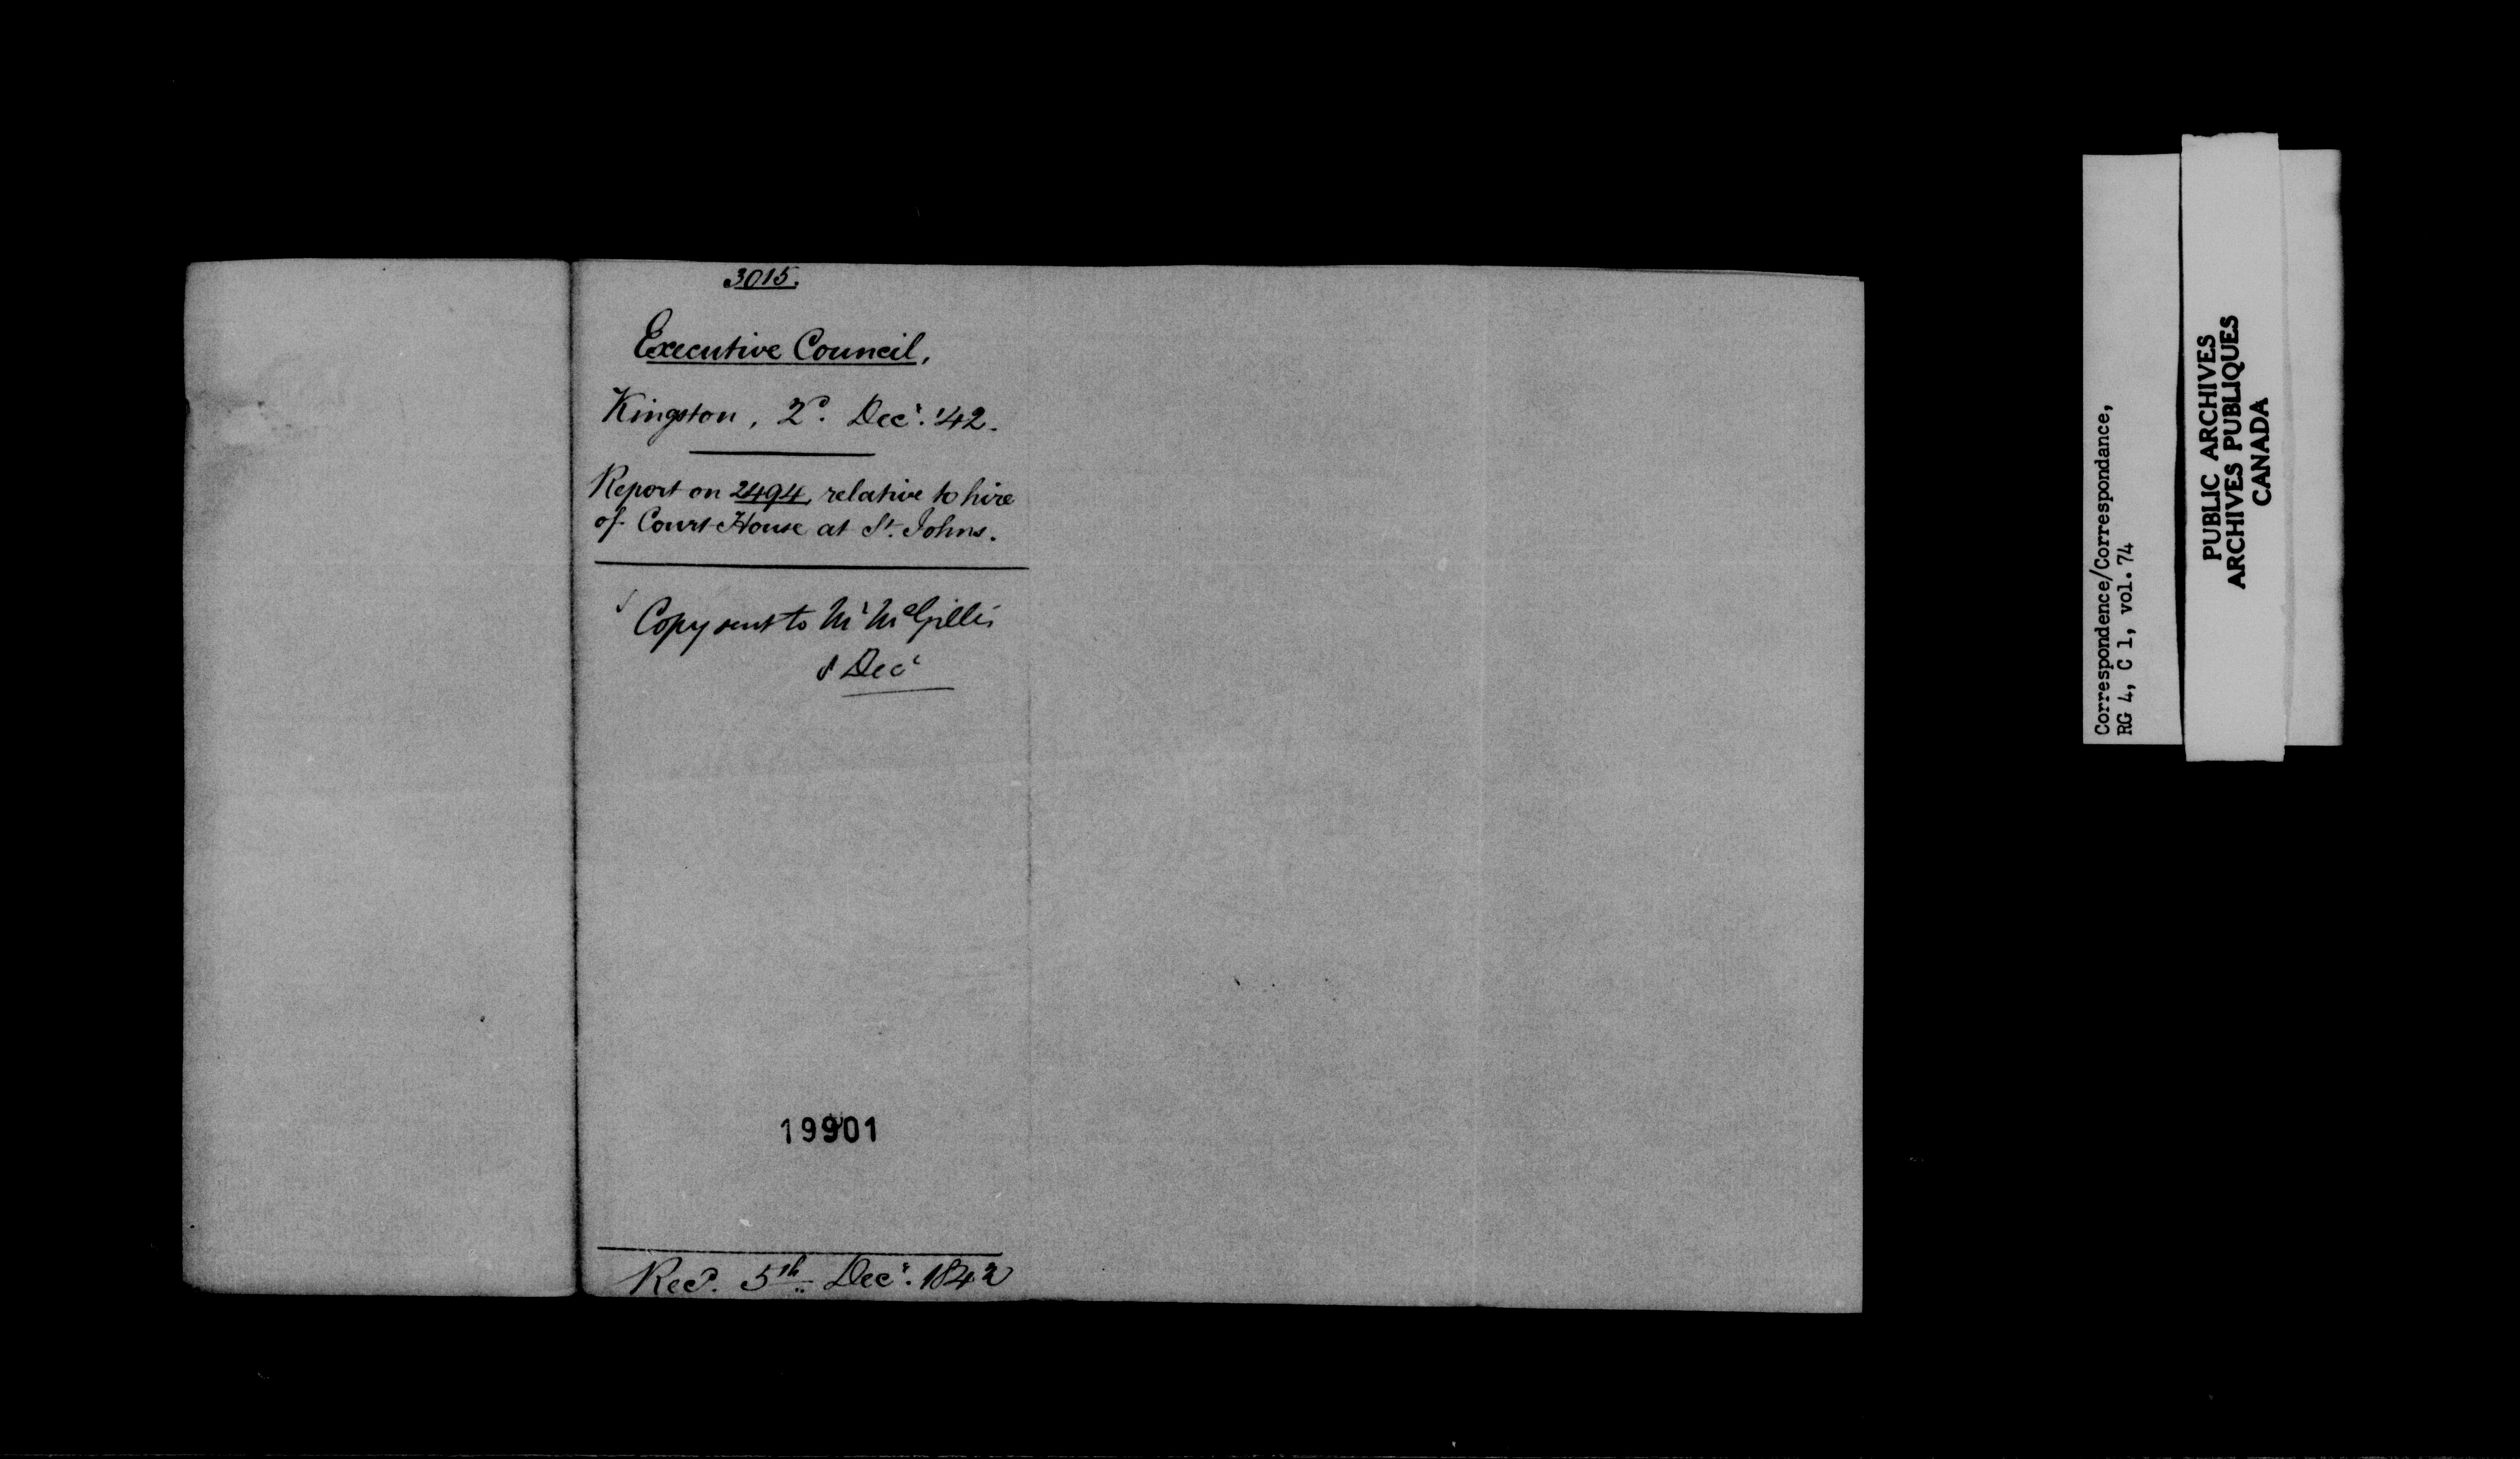 3015.
Executive Council,
Kingston, 2d. Decr. '42.
Report on 2494, relative to hire
of Court House at St. Johns.
Copy sent to Mr McGillis
8 Decr
19901
Recd. 5th Decr. 1842
Correspondence/Correspondance,
RG 4, C 1, vol. 74
PUBLIC ARCHIVES
ARCHIVES PUBLIQUES
CANADA